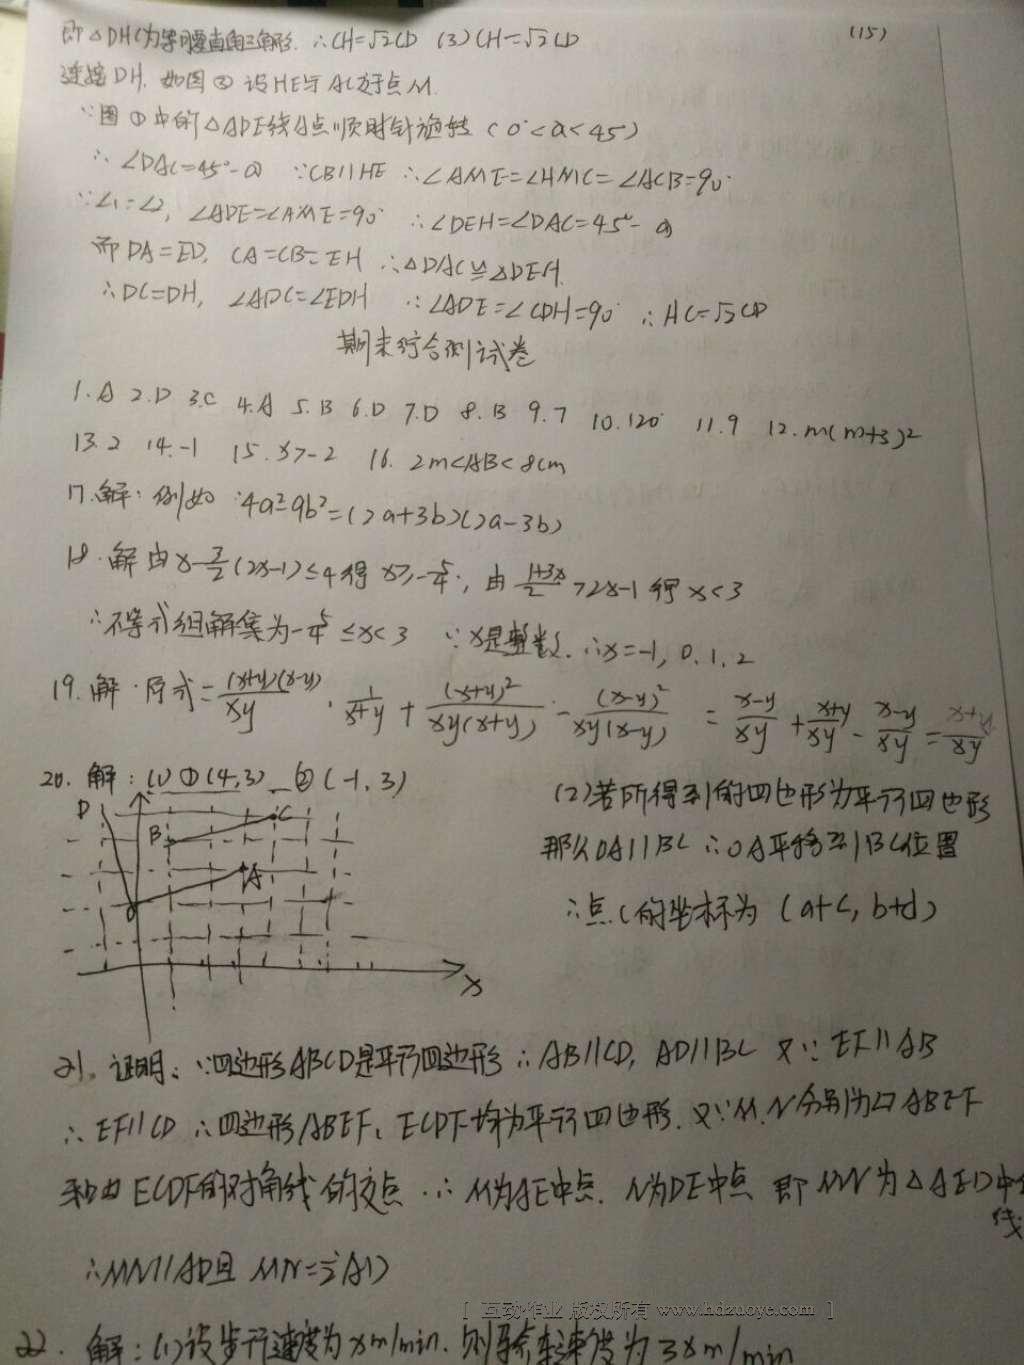 (15)
即△DHC为等腰直角三角形. ∴CH=√2CD (3)CH=√2CD
连接DH. 如图③ 设HE与AC交于点M.
∵图①中的△ADE绕A点顺时针旋转(0°<a<45°)
∴∠DAC=45°-a ∵CB∥HE ∴∠AME=∠HMC=∠ACB=90°
∵∠1=∠2, ∠ADE=∠AME=90° ∴∠DEH=∠DAC=45°-a
而DA=ED, CA=CB=EH ∴△DAC≌△DEH.
∴DC=DH, ∠ADC=∠EDH ∴∠ADE=∠CDH=90° ∴HC=√2CD
期末综合测试卷
1.A 2.D 3.C 4.A 5.B 6.D 7.D 8.B 9.7 10.120° 11.9 12.m(m+3)²
13.2 14.-1 15.x>-2 16. 2m<AB<8cm
17.解: 例如:4a²-9b²=(2a+3b)(2a-3b)
18.解 由x-3/2(2x-1)≤4得x≥-5/4, 由(1+3x)/2>2x-1得x<3
∴不等式组解集为-5/4≤x<3 ∵x是整数. ∴x=-1,0,1,2
19.解.原式=(x+y)(x-y)/xy·1/(x+y)+(x+y)²/xy(x+y)-(x-y)²/xy(x-y)=(x-y)/xy+(x+y)/xy-(x-y)/xy=(x+y)/xy
20.解:(1)①(4,3) ②(-1,3)
D
B
C
A
O
x
(2)若所得到的四边形为平行四边形
那么OA∥BC ∴OA平移到BC位置
∴点C的坐标为(a+c,b+d)
21.证明:∵四边形ABCD是平行四边形∴AB∥CD, AD∥BC 又∵EF∥AB
∴EF∥CD ∴四边形ABEF、ECDF均为平行四边形.又∵M.N分别为▱ABEF
和▱ECDF的对角线的交点.∴M为AE中点. N为DE中点 即MN为△AED中位
线
∴MN∥AD且MN=1/2AD
[ 互动作业 版权所有 www.hdzuoye.com ]
22.解:(1)设步行速度为xm/min.则骑车速度为3xm/min